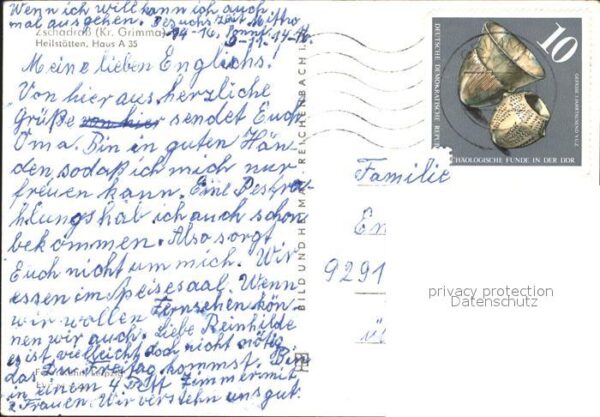 Wenn ich will kann ich auch
mal ausgehen. Besuchszeit Mittwo
14-16. Sonnt.
9-11. 14-16.
Zschadraß (Kr. Grimma)
Heilstätten, Haus A 35
Meine lieben Englichs!
Von hier aus herzliche
Grüße von hier sendet Euch
Oma. Bin in guten Hän-
den, sodaß ich mich nur
freuen kann. Eine Bestra-
hlungshab ich auch schon
bekommen. Also sorgt
Euch nicht um mich. Wir
essen im Speisesaal. Wenn
wir wollen Fernsehen kön-
nen wir auch. Liebe Reinhilde
es ist vielleicht doch nicht nötig
das Du Freitag kommst. Bin
in einem 4 Bett Zimmer mit
2 Frauen. Wir verstehn uns gut.
BILD UND HEIMAT REICHENBACH I.
10
DEUTSCHE DEMOKRATISCHE REPUB
GEFÄSSE 1. JAHRTAUSEND V.U.Z.
CHÄOLOGISCHE FUNDE IN DER DDR
Familie
En
9291
privacy protection
Datenschutz